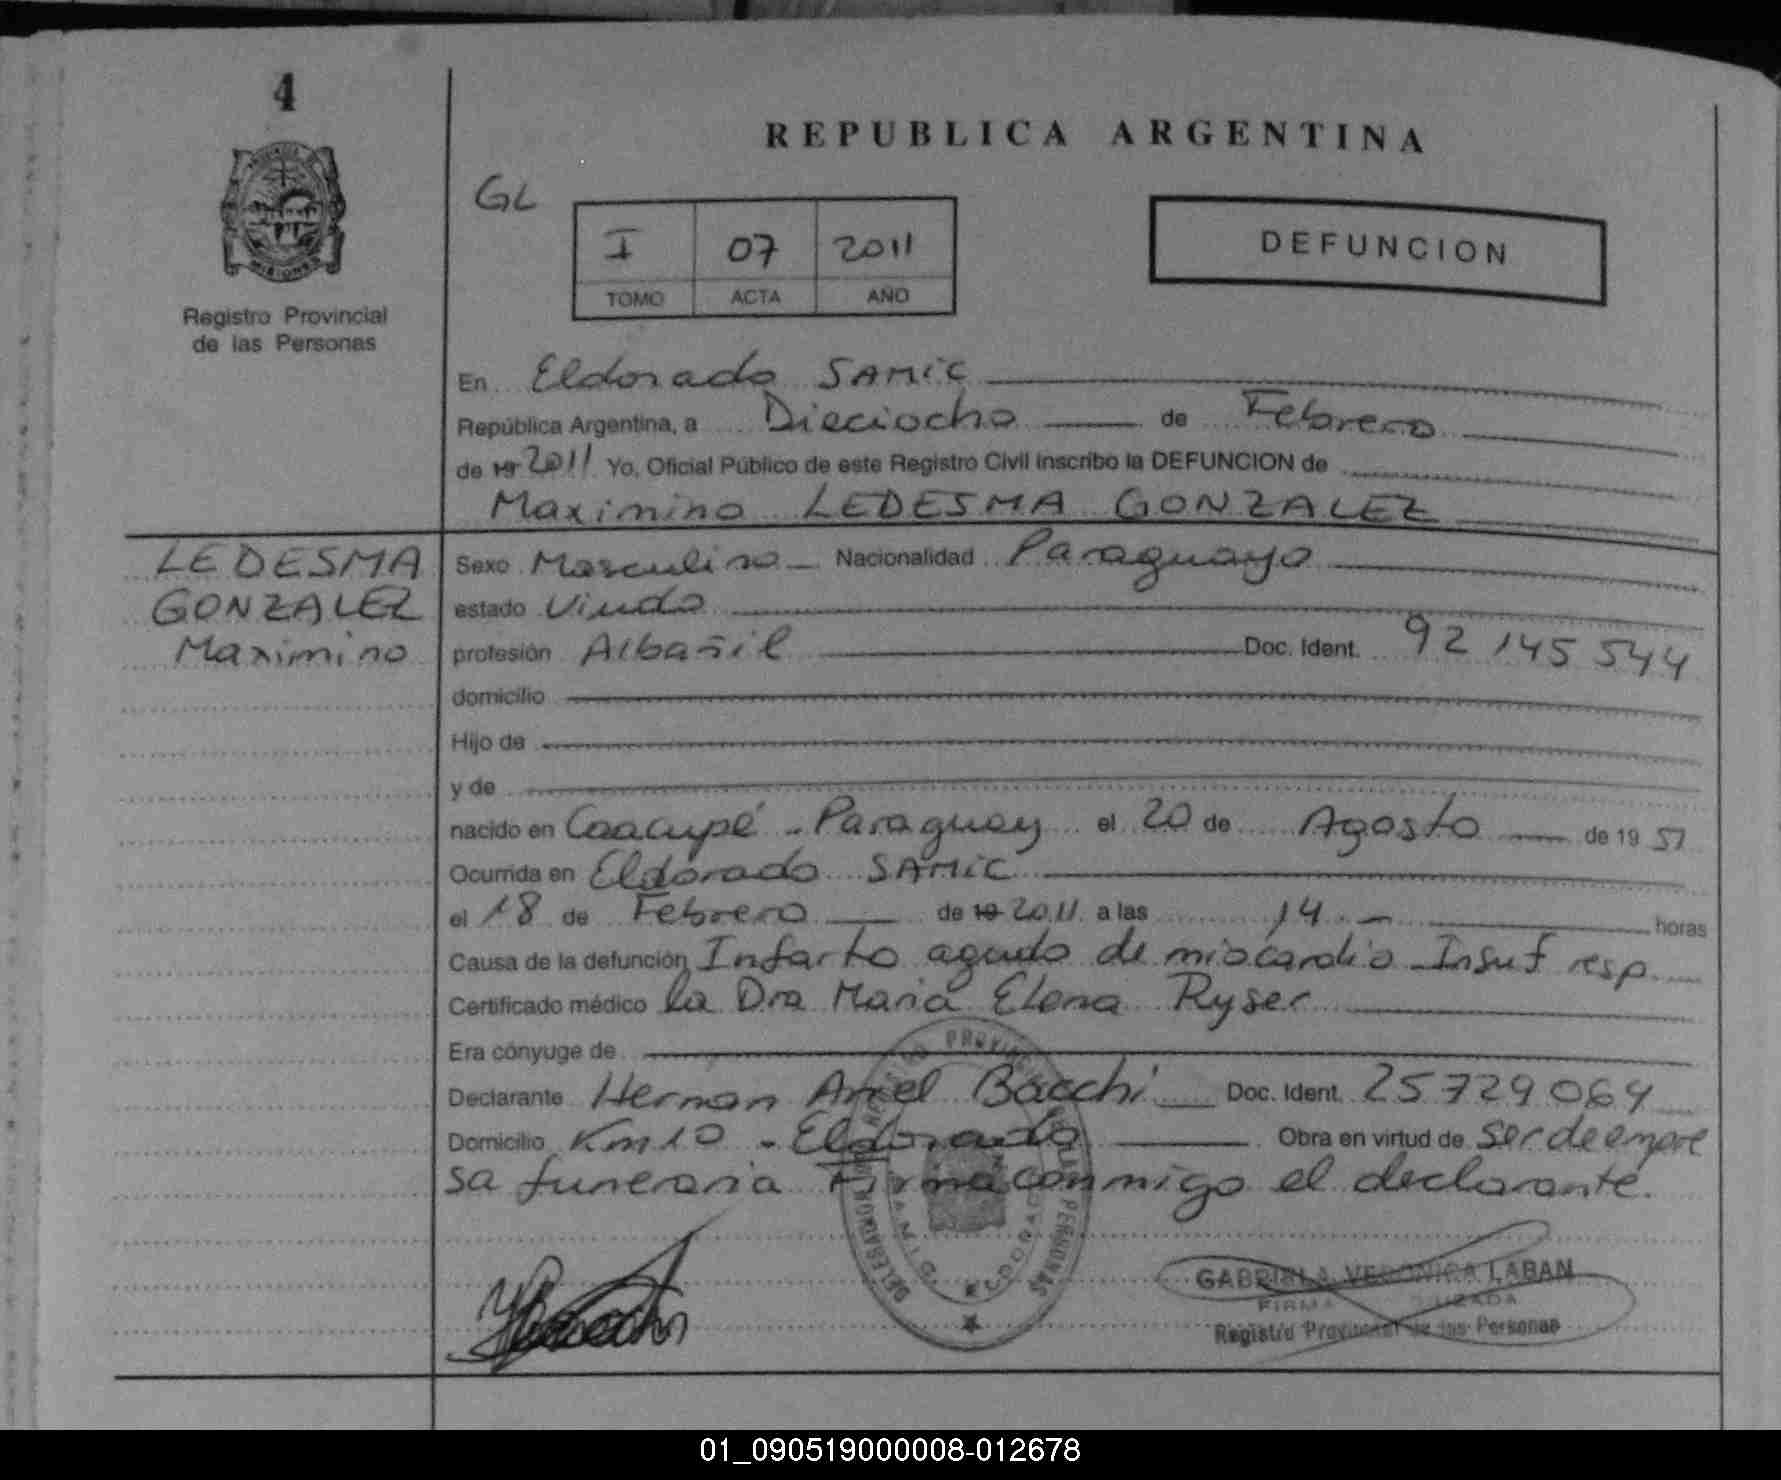 4
REPUBLICA ARGENTINA
MISIONES
Registro Provincial
de las Personas
GL
I 07 2011
TOMO ACTA AÑO
DEFUNCION
En Eldorado SAMIC
República Argentina, a Dieciocho de Febrero
de 19 2011 Yo, Oficial Público de este Registro Civil inscribo la DEFUNCION de
Maximino LEDESMA GONZALEZ
LEDESMA
GONZALEZ
Maximino
Sexo Masculino Nacionalidad Paraguayo
estado Viudo
profesión Albañil Doc. Ident. 92 145 544
domicilio
Hijo de
y de
nacido en Caacupé - Paraguay el 20 de Agosto de 19 51
Ocurrida en Eldorado SAMIC
el 18 de Febrero de 19 2011 a las 14 - horas
Causa de la defunción Infarto agudo de miocardio - Insuf resp.
Certificado médico la Dra Maria Elena Ryser
Era cónyuge de
Declarante Hernan Ariel Bacchi Doc. Ident. 25 729 064
Domicilio Km 10 - Eldorado Obra en virtud de ser de empre
sa funeraria Firma conmigo el declarante.
GABRIELA VERONICA LABAN
FIRMA AUTORIZADA
Registro Provincial de las Personas
01_090519000008-012678